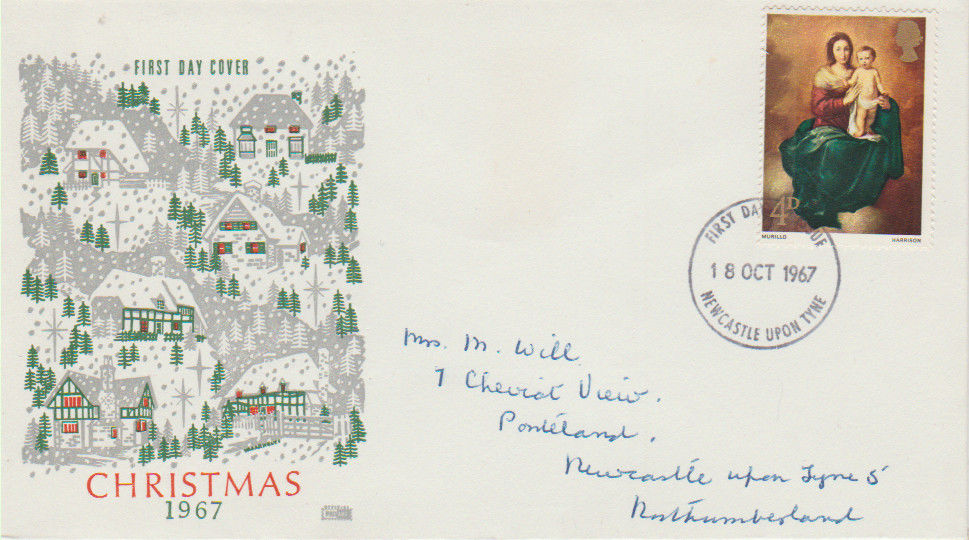 FIRST DAY COVER
4D
MURILLO HARRISON
FIRST DAY OF ISSUE
18 OCT 1967
NEWCASTLE UPON TYNE
Mrs. M. Will
7 Cheviot View.
Ponteland.
Newcastle upon Tyne 5
Northumberland
CHRISTMAS
1967
OFFICIAL